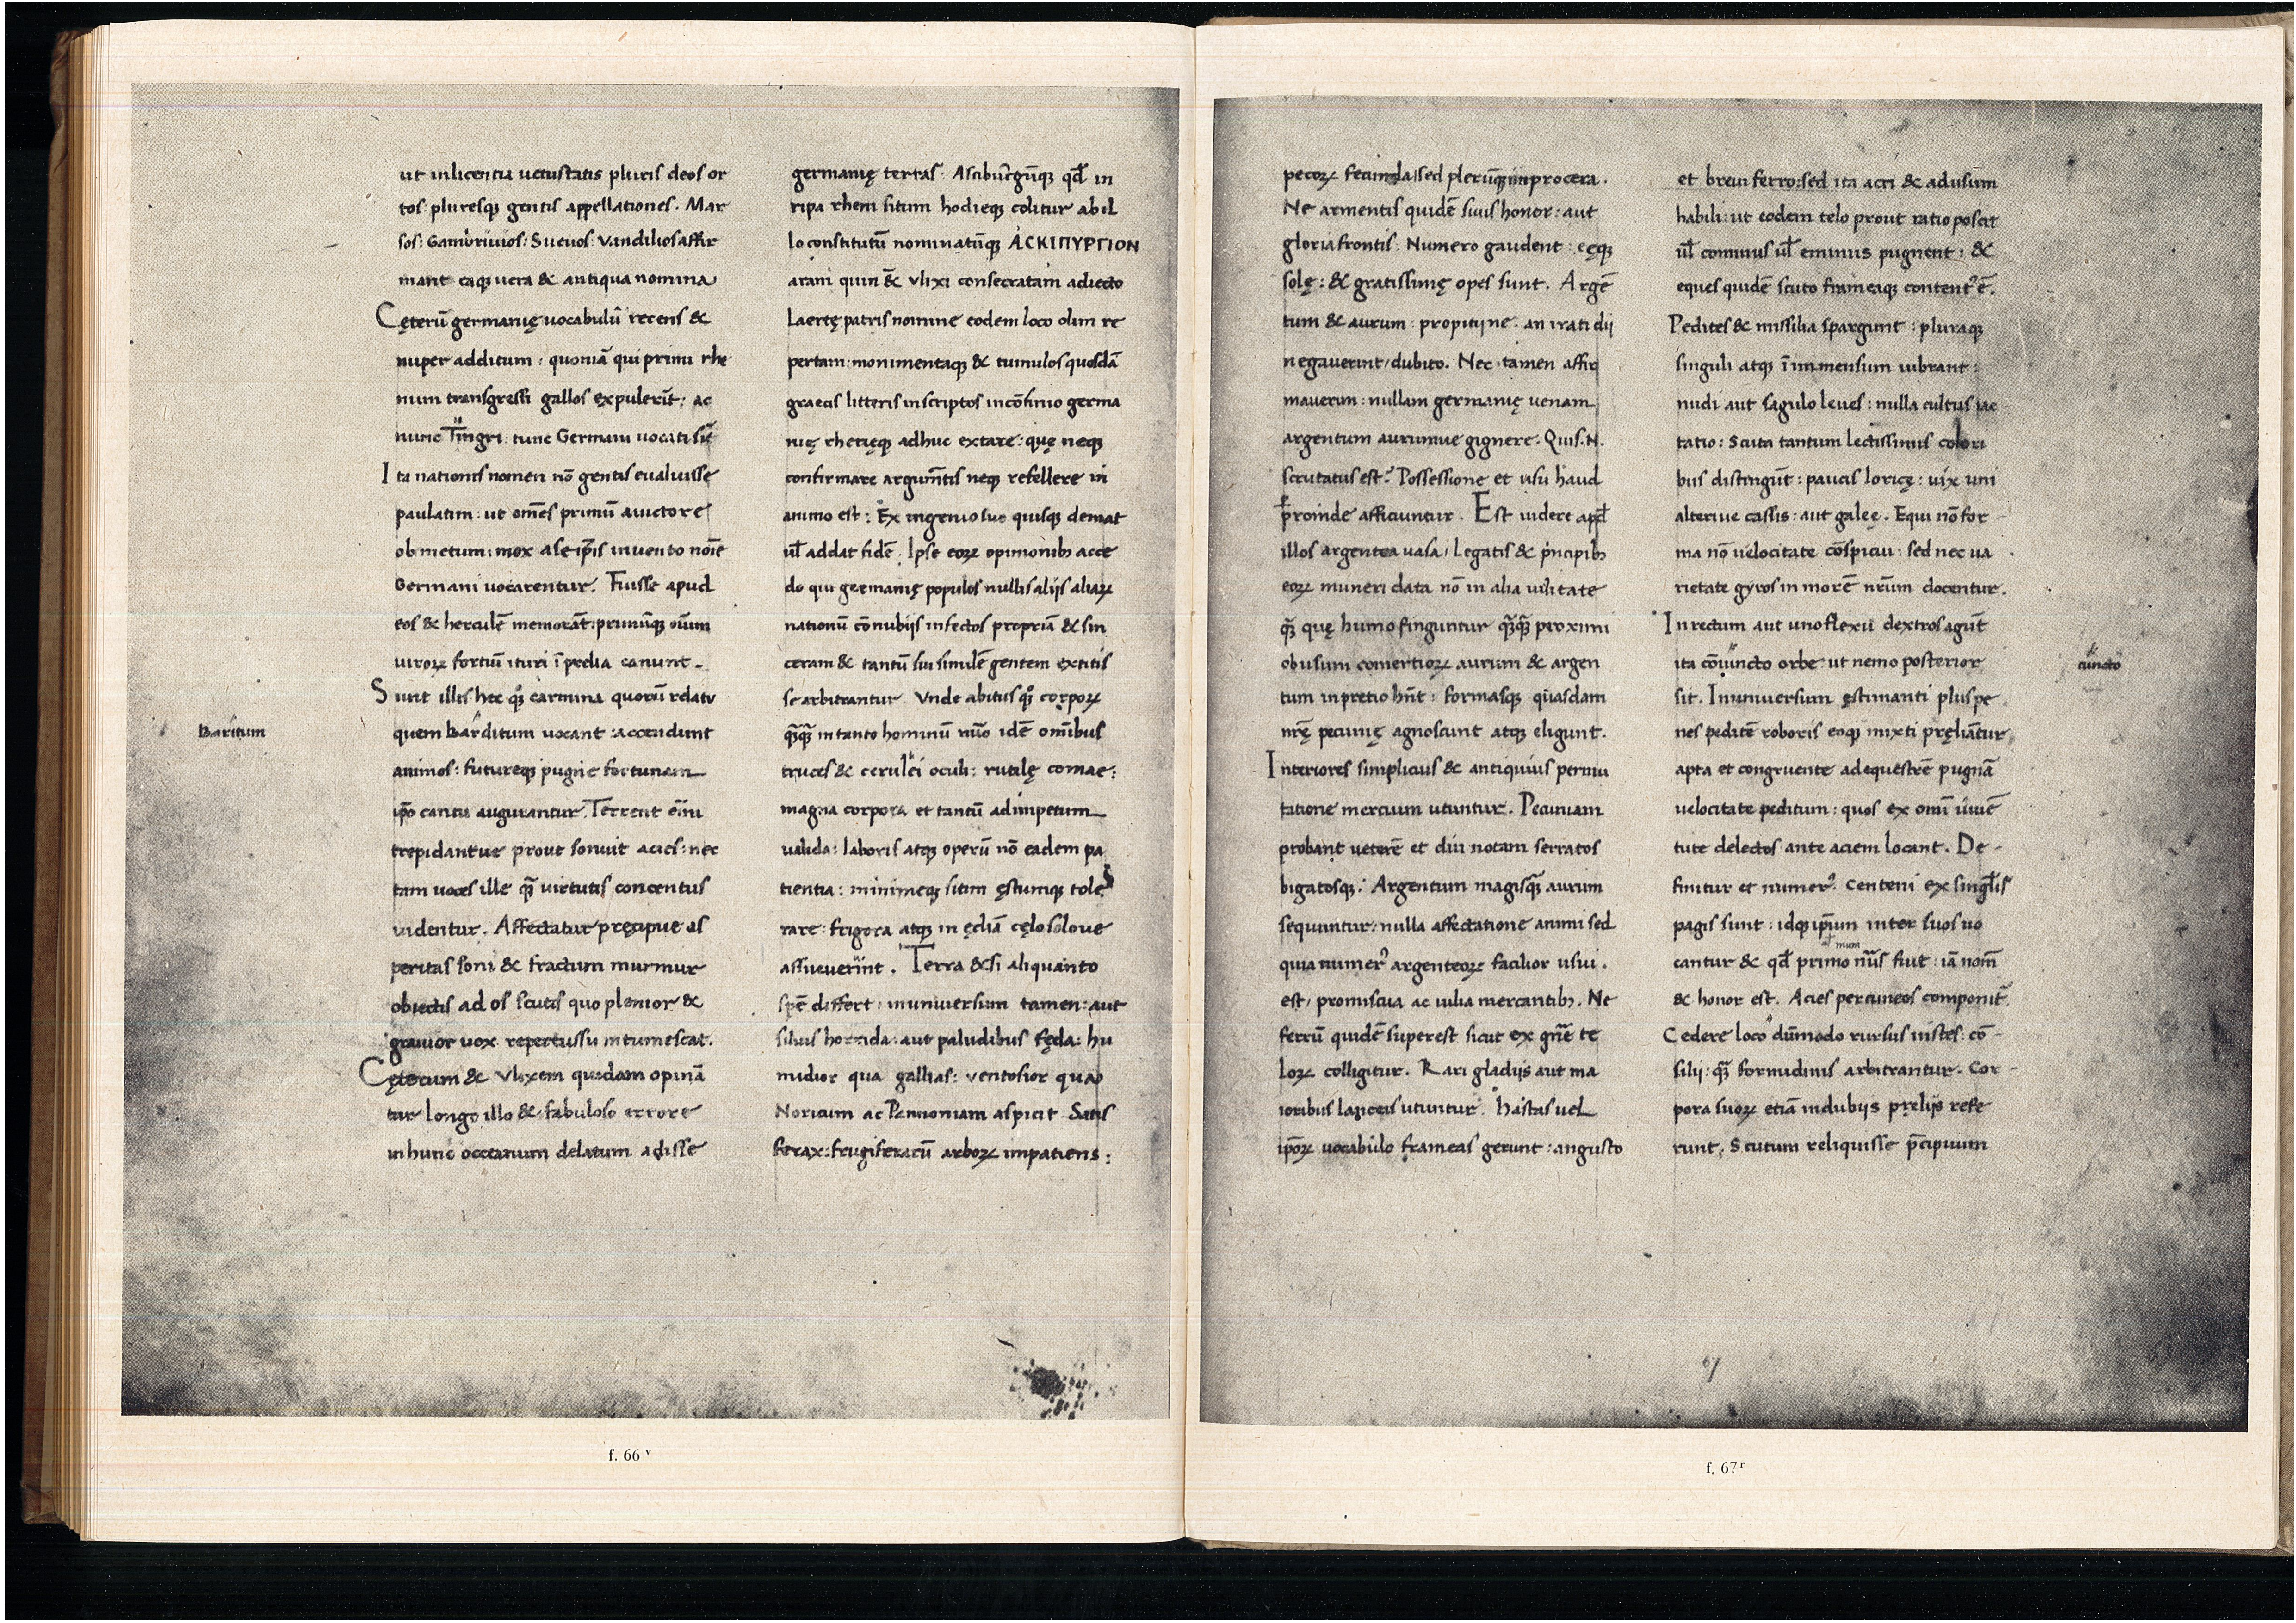 ut inlicentia uetustatis pluris deos or
tos: pluresq; gentis appellationes. Mar
sos: Gambrivios: Sueuos: Vandilios affir
mant eaq; uera & antiqua nomina
Cęterū germanię uocabulū recens &
nuper additum: quoniā qui primi rhe
num transgressi gallos expulerīt: ac
nunc Tungri: tunc Germani uocati sīt
Ita nationis nomen nō gentis eualuisse
paulatim: ut om̄es primū auictore
ob metum: mox a se ip̄is inuento nōie
Germani uocarentur. Fuisse apud
eos & herculē memorāt: primūq; oīum
uiroꝝ fortiū ituri ī prelia canunt.
Sunt illis hec qꝫ carmina quorū relatu
Baritum
quem Barditum uocant: accendunt
animos: futureq; pugne fortunam
ip̄o cantu augurantur. Terrent ēīm
trepidantue prout sonuit acies: nec
tam uoces ille q̄ virtutis concentus
uidentur. Affectatur pręcipue as
peritas soni & fractum murmur
obiectis ad os scutis quo plenior &
grauior uox repercussu intumescat.
Cęterum & Vlixem quidam opinā
tur longo illo & fabuloso errore
in hunc occeanum delatum adisse
germanię terras: Asciburgūq; qđ in
ripa rheni situm hodieq; colitur ab il
lo constitutū nominatūq; ΑCΚΙΠΥΡΓΙΟΝ
aram quin & Vlixi consecratam adiecto
Laertę patris nomine eodem loco olim re
pertam: monimentaq; & tumulos quosdā
graecis litteris inscriptos in cōfinio germa
nię rhetięq; adhuc extare: quę neq;
confirmare argum̄tis neq; refellere in
animo est: Ex ingenio suo quisq; demat
uł addat fidē. Ipse eoꝝ opinionib; acce
do qui germanię populos nullis alijs aliaꝝ
nationū cōnubijs infectos propriā & sin
ceram & tantū sui similē gentem extitis
se arbitrantur. Vnde abitus qꝫ corpoꝝ
q̄q̄ in tanto hominū nūo idē omībus
truces & cerulei oculi: rutilę comae:
magna corpora et tantū ad impetum
ualida: laboris atq; operū nō eadem pa
tientia: minimeq; sitim ęstumq; tole
rare: frigora atq; in ędiā cęlo soloue
assueuerint. Terra & si aliquanto
spē differt: in uniuersum tamen: aut
siluis horrida: aut paludibus fęda: hu
midior qua gallias: ventosior qua
Noricum ac Pannoniam aspicit. Satis
ferax: frugiferarū arboꝝ impatiens:
f. 66 v
pecoꝝ fecunda, sed plerūq; improcera.
Ne armentis quidē suus honor: aut
gloria frontis: Numero gaudent: eęq;
solę: & gratissimę opes sunt. Argē
tum & aurum: propitij ne. an irati dij
negauerint, dubito. Nec tamen affir
mauerim: nullam germanię uenam
argentum aurumue gignere. Quis. N.
scrutatus est? Possessione et usu haud
proinde afficiuntur. Est uidere apđ
illos argentea uasa, Legatis & p̄ncipib;
eoꝝ muneri data nō in alia uilitate
q̄ quę humo finguntur q̄q̄ proximi
ob usum comertioꝝ aurum & argen
tum in pretio hn̄t: formasq; quasdam
nr̄ę pecunię agnoscunt atq; eligunt.
Interiores simplicius & antiquius permu
tatione mercium utuntur. Pecuniam
probant ueterē et diu notam serratos
bigatosq; Argentum magis q̄ aurum
sequuntur, nulla affectatione animi sed
quia numer᷒ argenteoꝝ facilior usui.
est, promiscua ac uilia mercantib;. Ne
ferrū quidē superest sicut ex gn̄e te
loꝝ colligitur. Rari gladijs aut ma
ioribus lanceis utuntur. hastas uel
ip̄oꝝ uocabulo frameas gerunt: angusto
et breui ferro: sed ita acri & ad usum
habili: ut eodem telo prout ratio poscit
uł cominus uł eminus pugnent: &
eques quidē scuto frameaq; content᷒ ē.
Pedites & missilia spargunt: pluraq;
singuli atq; ī immensum uibrant:
nudi aut sagulo leues: nulla cultus iac
tatio: Scuta tantum lectissimis colori
bus distingūt: paucis loricę: uix uni
alteriue cassis: aut galeę. Equi nō for
ma nō uelocitate cōspicui: sed nec ua
rietate gyros in morē nr̄um docentur.
In rectum aut uno flexu dextros agūt
ita cōiuncto orbe: ut nemo posterior
cuncto
sit. In uniuersum ęstimanti plus pe
nes peditē roboris eoq; mixti pręliātur
apta et congruente ad equestrē pugnā
uelocitate peditum: quos ex omī iuuē
tute delectos ante aciem locant. De-
finitur et numer᷒. Centeni ex singlis
pagis sunt: idq; ip̄um inter suos uo
cantur & qđ primo nūs fuit: iā nom̄
& honor est. Acies per cuneos componit̄.
Cedere loco dūmodo rursus instes: cō-
silij: q̄ formidinis arbitrantur. Cor-
pora suoꝝ etiā in dubijs prelijs refe
runt. Scutum reliquisse p̄cipuum
67
f. 67 r